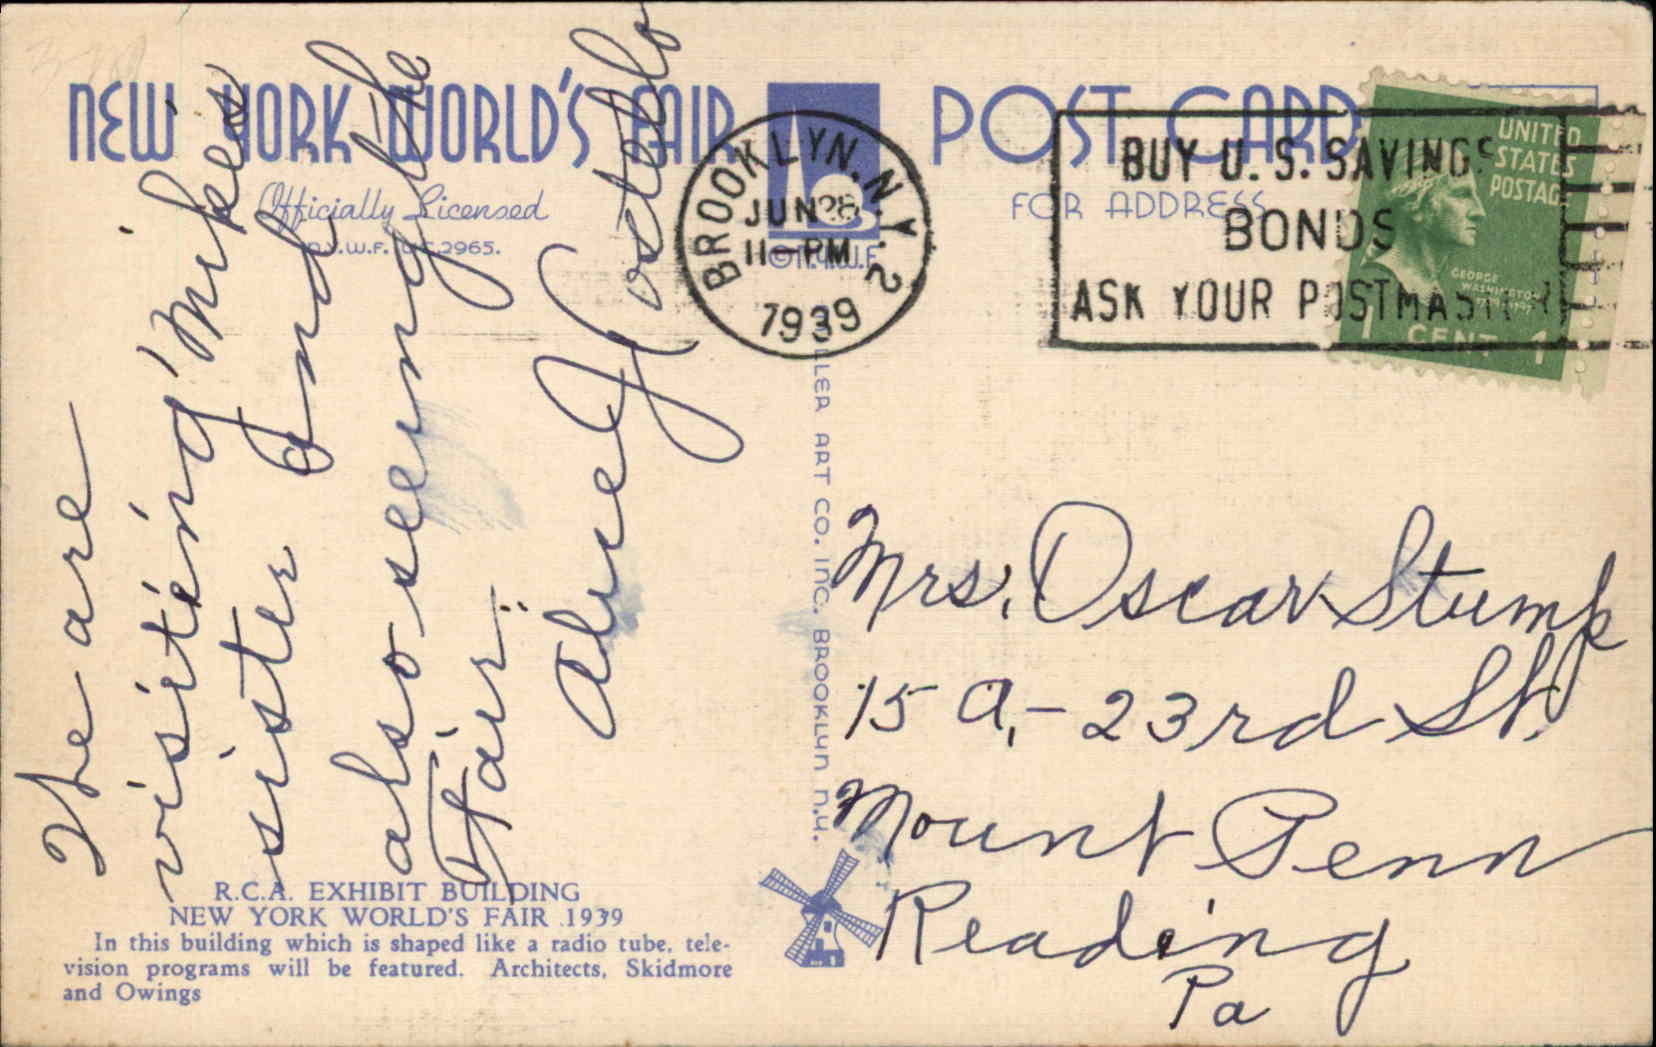 NEW YORK WORLD'S FAIR
Officially Licensed
N.Y.W.F. LIC. 2965.
POST CARD
FOR ADDRESS
©N.Y.W.F.
BROOKLYN, N.Y. 2
JUN 28
11-PM
1939
BUY U.S. SAVINGS
BONDS
ASK YOUR POSTMASTER
UNITED
STATES
POSTAGE
GEORGE
WASHINGTON
1 CENT 1
We are
visiting Mikes
sister and
also seeing the
Fair.
Alice J Costello
LER ART CO. INC. BROOKLYN N.Y.
Mrs. Oscar Stump
15 A,- 23rd St.
Mount Penn
Reading
Pa
R.C.A. EXHIBIT BUILDING
NEW YORK WORLD'S FAIR 1939
In this building which is shaped like a radio tube, tele-
vision programs will be featured. Architects, Skidmore
and Owings